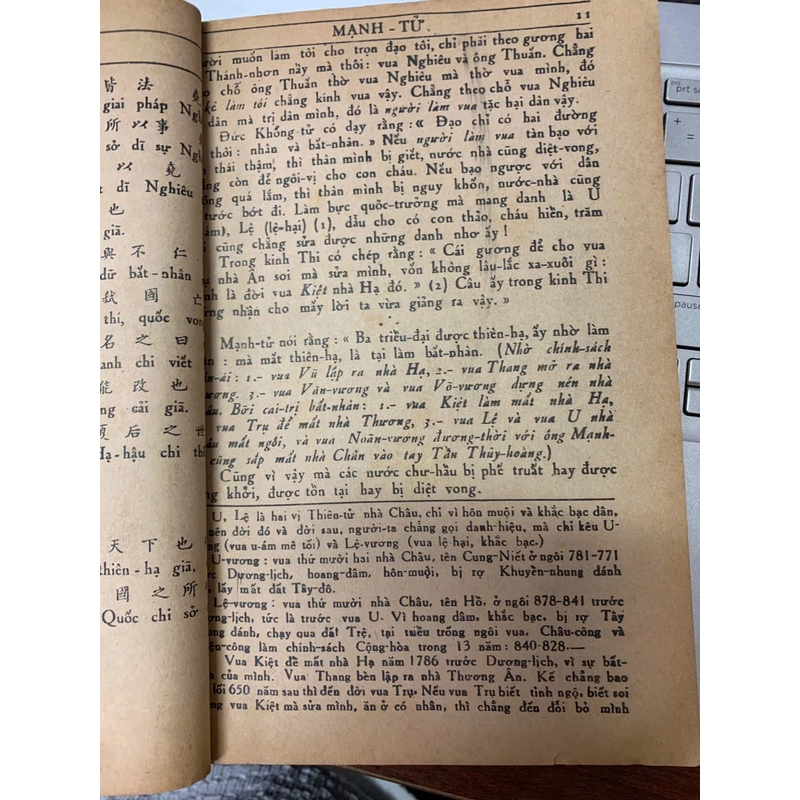 皆 法
giai pháp Ngh
所 以 事
sở dĩ sự Ngh
以 堯
dĩ Nghiêu
也
giã.
與 不 仁
dữ bất-nhân
弒 國 亡
thí, quốc von
名 之 曰
anh chi viết
能 改 也
ng cải giã.
后 之 世
Hạ-hậu chi th
天 下 也
thiên-hạ giã,
國 之 所
Quốc chi sở
MẠNH-TỬ
11
ười muốn làm tôi cho trọn đạo tôi, chỉ phải theo gương hai
Thánh-nhơn nầy mà thôi: vua Nghiêu và ông Thuấn. Chẳng
o chỗ ông Thuấn thờ vua Nghiêu mà thờ vua mình, đó
kẻ làm tôi chẳng kinh vua vậy. Chẳng theo chỗ vua Nghiêu
dân mà trị dân mình, đó là người làm vua tặc hại dân vậy.
Đức Khổng-tử có dạy rằng: « Đạo chỉ có hai đường
thôi: nhân và bất-nhân. » Nếu người làm vua tàn bạo với
thái thậm, thì thân mình bị giết, nước nhà cũng diệt-vong,
ẳng còn để ngôi-vị cho con cháu. Nếu bạo ngược với dân
ông quá lắm, thì thân mình bị nguy khốn, nước-nhà cũng
tước bớt đi. Làm bực quốc-trưởng mà mang danh là U
ám), Lệ (lệ-hại) (1), dẫu cho có con thảo, cháu hiền, trăm
i cũng chẳng sửa được những danh nhơ ấy!
Trong kinh Thi có chép rằng: « Cái gương để cho vua
u nhà Ân soi mà sửa mình, vốn không lâu-lắc xa-xuôi gì:
nh là đời vua Kiệt nhà Hạ đó. » (2) Câu ấy trong kinh Thi
ứng nhận cho mấy lời ta vừa giảng ra vậy. »
Mạnh-tử nói rằng: « Ba triều-đại được thiên-hạ, ấy nhờ làm
: mà mất thiên-hạ, là tại làm bất-nhân. (Nhờ chính-sách
n-ái: 1.- vua Vũ lập ra nhà Hạ, 2.- vua Thang mở ra nhà
ương. 3.- vua Văn-vương và vua Võ-vương dựng nên nhà
âu. Bởi cai-trị bất-nhân: 1.- vua Kiệt làm mất nhà Hạ,
vua Trụ để mất nhà Thương, 3.- vua Lệ và vua U nhà
âu mất ngôi, và vua Noãn-vương đương-thời với ông Mạnh-
cũng sắp mất nhà Châu vào tay Tần Thủy-hoàng.)
Cũng vì vậy mà các nước chư-hầu bị phế truất hay được
ng khởi, được tồn tại hay bị diệt vong.
U, Lệ là hai vị Thiên-tử nhà Châu, chỉ vì hôn muội và khắc bạc dân,
nên đời đó và đời sau, người-ta chẳng gọi danh-hiệu, mà chỉ kêu U-
ng (vua u-ám mê tối) và Lệ-vương (vua lệ hại, khắc bạc.)
U-vương: vua thứ mười hai nhà Châu, tên Cung-Niết ở ngôi 781-771
ớc Dương-lịch, hoang-dâm, hôn-muội, bị rợ Khuyển-nhung đánh
, lấy mất đất Tây-đô.
Lệ-vương: vua thứ mười nhà Châu, tên Hồ, ở ngôi 878-841 trước
ơng-lịch, tức là trước vua U. Vì hoang dâm, khắc bạc, bị rợ Tây
ng đánh, chạy qua đất Trệ, tại tuều trống ngôi vua, Châu-công và
ệu-công làm chinh-sách Cộng-hòa trong 13 năm: 840-828.—
Vua Kiệt để mất nhà Hạ năm 1786 trước Dương-lịch, vì sự bất-
n của mình. Vua Thang bèn lập ra nhà Thương Ân. Kế chẳng bao
lối 650 năm sau thì đến đời vua Trụ. Nếu vua Trụ biết tỉnh ngộ, biết soi
ng vua Kiệt mà sửa mình, ăn ở có nhân, thì chẳng đến đổi bỏ mình
prt sc
pause